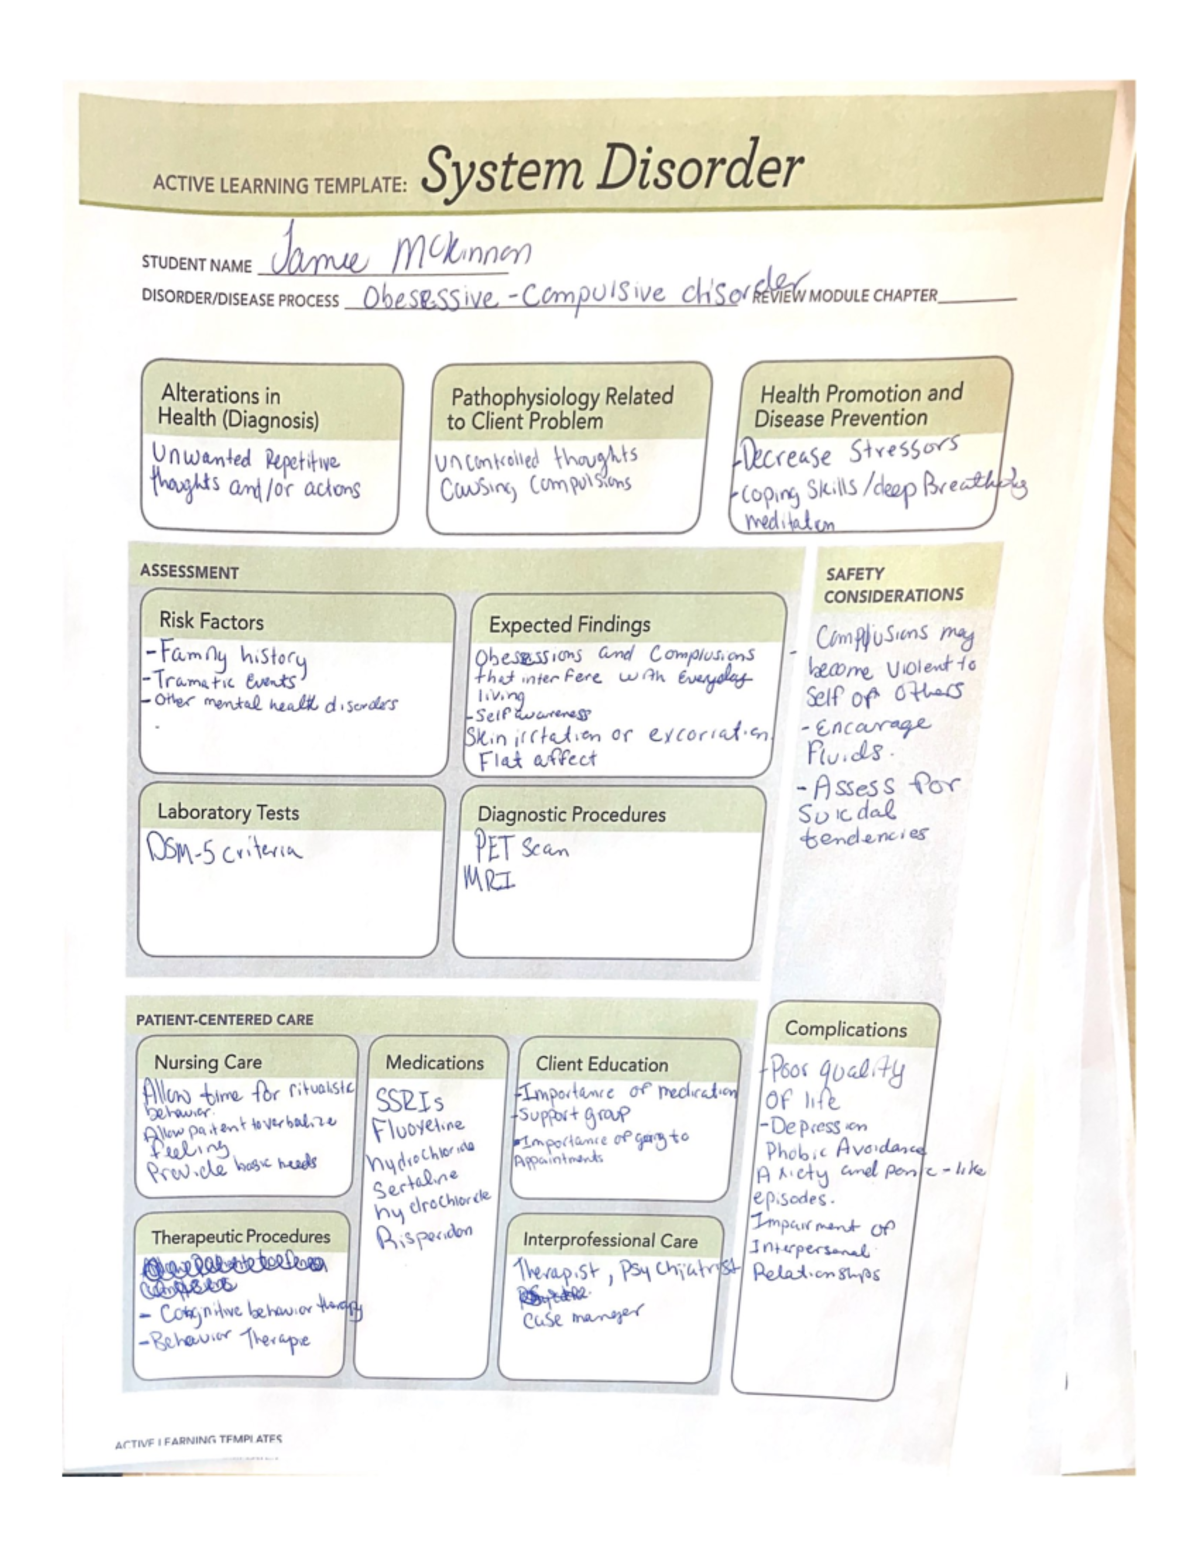 ACTIVE LEARNING TEMPLATE: System Disorder
STUDENT NAME Jamie McKinnon
DISORDER/DISEASE PROCESS Obesessive-Compulsive disorder REVIEW MODULE CHAPTER
Alterations in
Health (Diagnosis)
Unwanted Repetitive
thoughts and/or actions
Pathophysiology Related
to Client Problem
uncontrolled thoughts
Causing compulsions
Health Promotion and
Disease Prevention
-Decrease Stressors
-coping skills/deep Breathing
meditation
ASSESSMENT
Risk Factors
-Family history
-Tramatic Events
-Other mental health disorders
Expected Findings
Obesessions and Complusions
that interfere with Everyday
living
-Self awareness
Skin irritation or excoriation
Flat affect
Laboratory Tests
DSM-5 criteria
Diagnostic Procedures
PET Scan
MRI
SAFETY
CONSIDERATIONS
- Complusions may
become violent to
self or others
-Encourage
Fluids.
-Assess for
Suicdal
tendencies
PATIENT-CENTERED CARE
Nursing Care
Allow time for ritualistic
behavior.
Allow paitent to verbalize
feeling
Provide basic needs
Medications
SSRIs
Fluoxetine
hydrochloride
Sertaline
hydrochloride
Risperidon
Client Education
-Importance of medication
-Support group
-Importance of going to
Appointments
Therapeutic Procedures
- Cognitive behavior therapy
-Behavior Therapie
Interprofessional Care
Therapist, Psychiatrist
case manager
Complications
-Poor quality
of life
-Depression
Phobic Avoidance
Axiety and panic-like
episodes.
Impairment of
Interpersonal
Relationships
ACTIVE LEARNING TEMPLATES